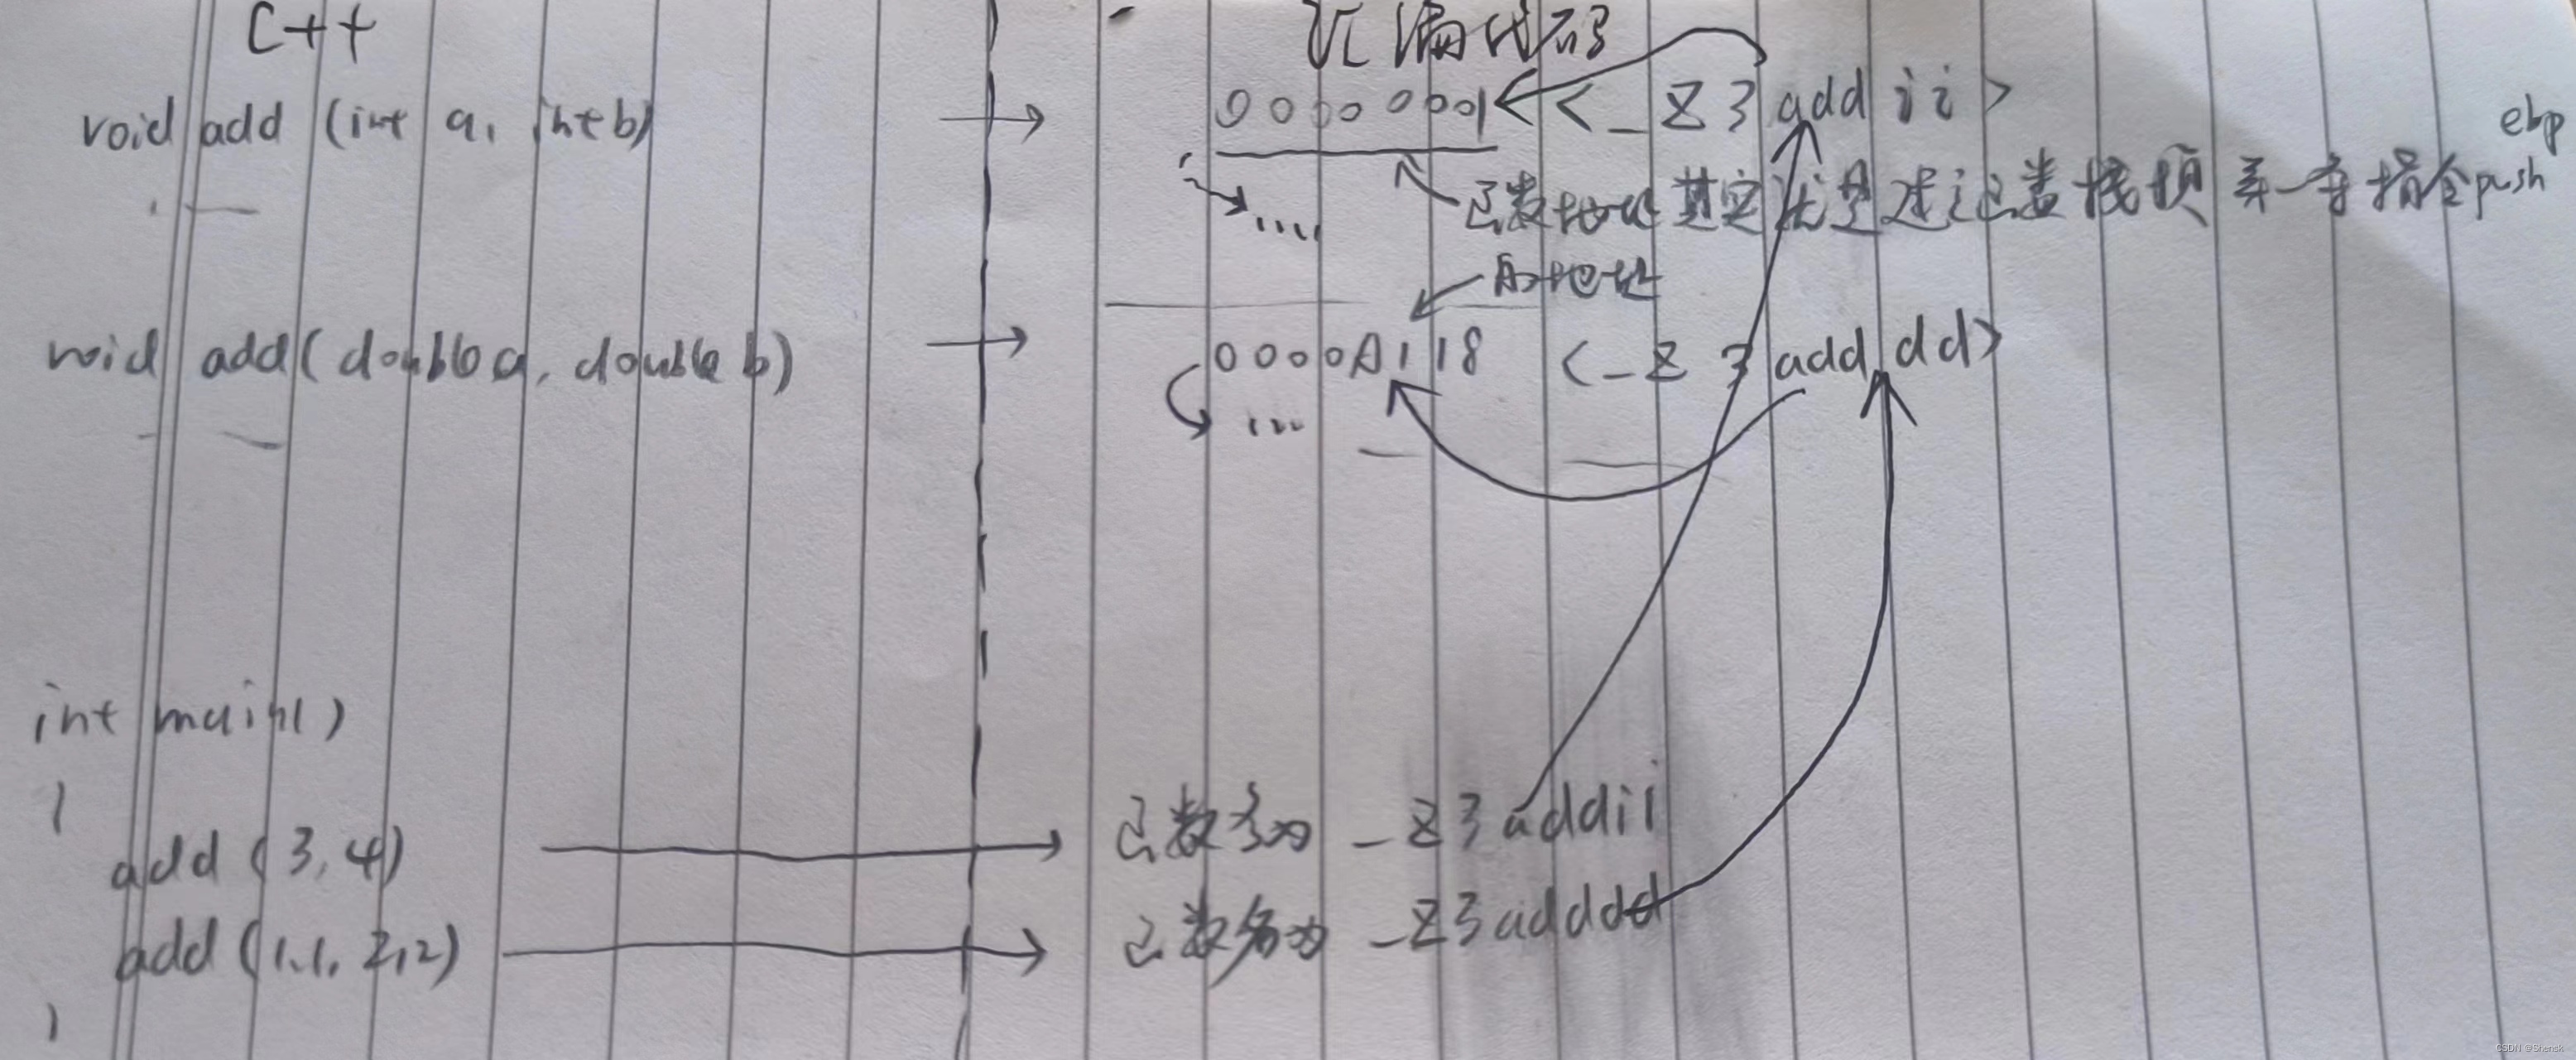 C++
汇编代码
void add (int a, int b)
0000 0001 <_Z3 add ii>
ebp
函数地址其实就是进函数栈顶 第一条指令push
的地址
void add(double a, double b)
0000A118 <_Z3 add dd>
....
int main()
{
add (3,4)
函数名为 _Z3addii
add (1.1, 2,2)
函数名为 _Z3adddd
}